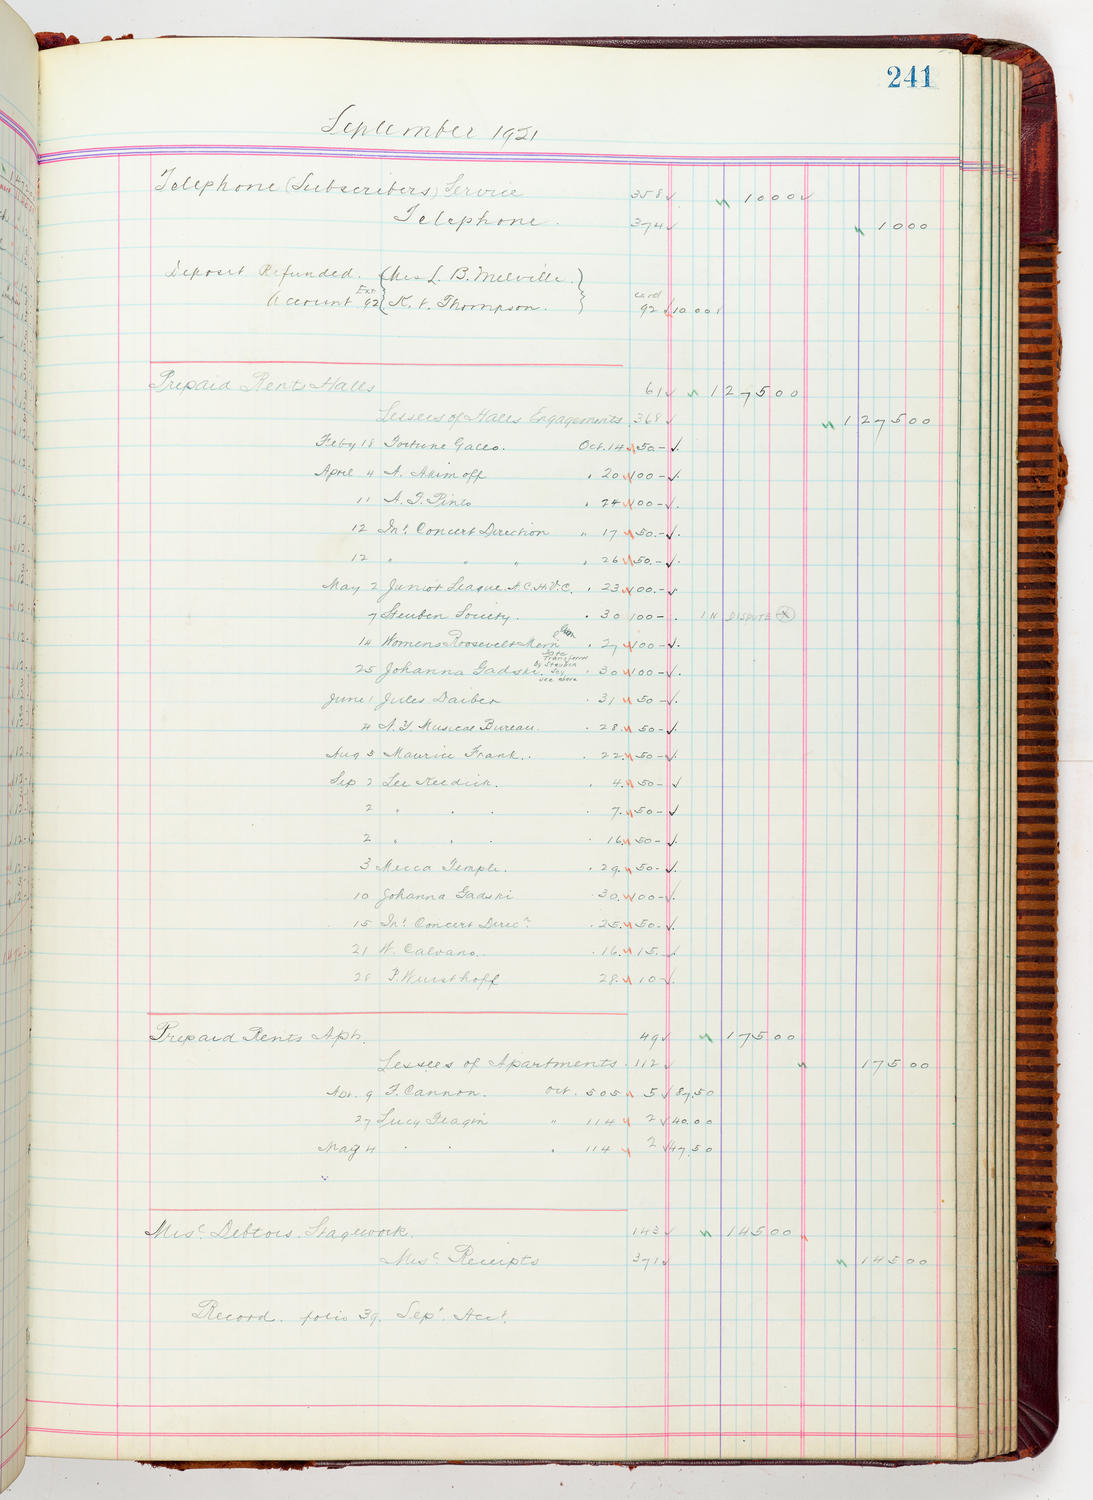 241
September 1921
Telephone (Subscribers) Service 358 1000
Telephone. 374 1000
Deposit Refunded. (Mrs L. B. Melville.)
Account Ext 92 K. V. Thompson. card 92 10.00
Prepaid Rents Halls 61 127500
Lessees of Halls Engagements 368 127500
Feby 18 Fortune Gallo. Oct. 14 50.-
April 4 A. Akimoff " 20 100-
11 A. T. Pinto " 24 100-
12 Int. Concert Direction " 17 50.-
12 " " " " 26 50.-
May 2 Junior League N.C.H.D.C. " 23 100.-
7 Steuben Society. " 30 100-. IN DISPUTE X
14 Womens Roosevelt Mem " 27 100-
Date
Transferred
by Steuben
Soy
see above
25 Johanna Gadski. " 30 100-
June 1 Jules Daiber " 31 50-
4 N.Y. Musical Bureau. " 28. 50-
Aug 5 Maurice Frank. " 22. 50-
Sep 2 Lee Keedick. " 4. 50-
2 " " " " 7. 50-
2 " " " " 16. 50-
3 Mecca Temple. " 29. 50-
10 Johanna Gadski " 30. 100-
15 Int. Concert Direcn " 25. 50.
21 W. Calvano. " 16. 15.
28 P. Wursthoff 28. 10-
Prepaid Rents Apts. 49 17500
Lessees of Apartments 112 17500
Apr. 9 F. Cannon. Oct. 505 5 87.50
27 Lucy Feagin " 114 2 40.00
May 4 " " " 114 2 47.50
Misc. Debtors. Stagework. 143 14500
Misc. Receipts 371 14500
Record. folio 39. Sept. Acct.